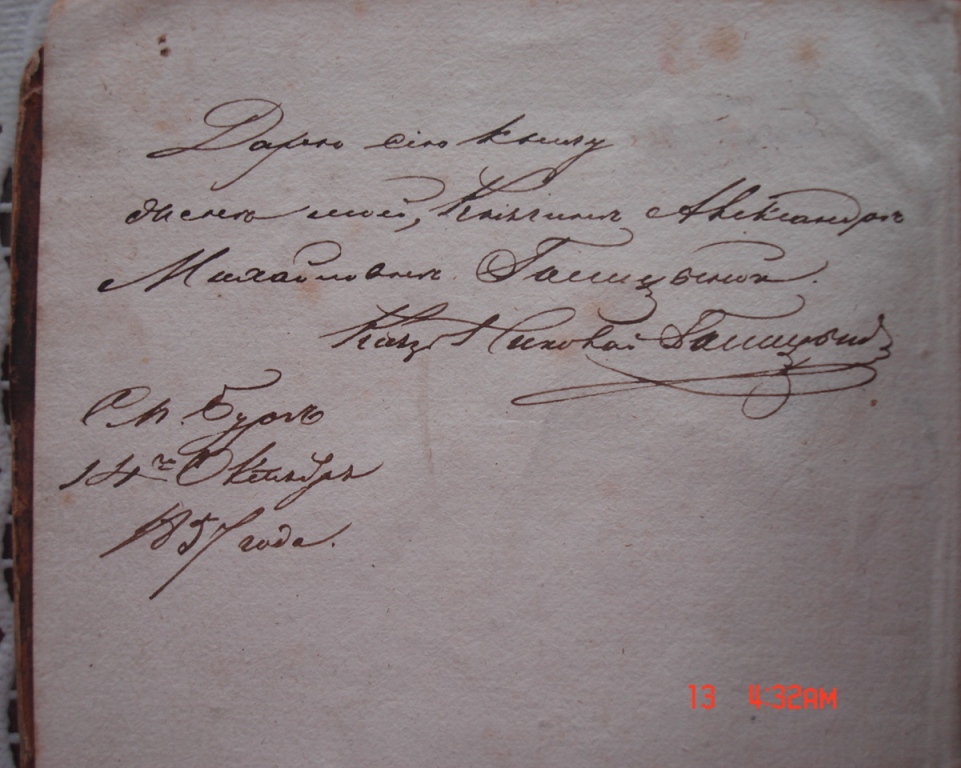 Дарю сію книгу
женѣ моей, Княгинѣ Александрѣ
Михайловнѣ Голицыной.
Князь Николай Голицынъ
С. П. Бургъ
14го Октября
1857 года.
13 4:32AM